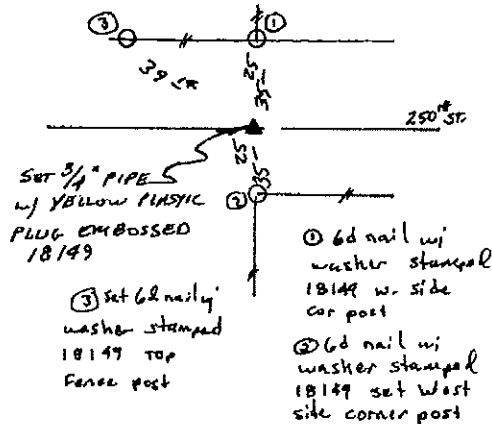 ③
①
39 in
25
35
250th ST.
25
35
②
SET 3/4" PIPE
w/ YELLOW PLASTIC
PLUG EMBOSSED
18149
① 6d nail w/
washer stamped
18149 w. side
cor post
③ set 6d nail w/
washer stamped
18149 TOP
Fence post
② 6d nail w/
washer stamped
18149 set West
side corner post